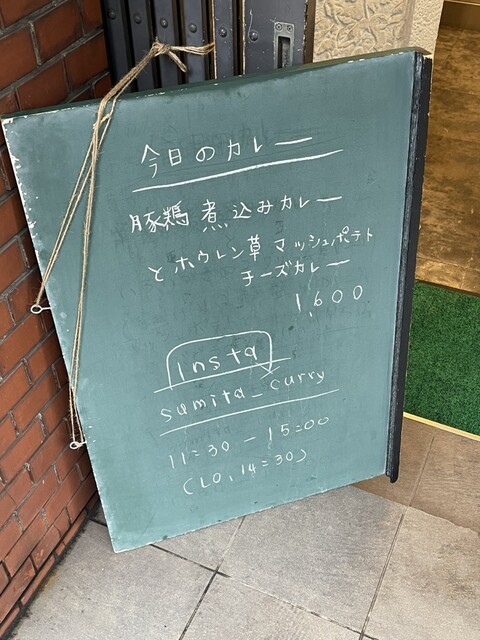 今日のカレー
豚鶏 煮込みカレー
とホウレン草マッシュポテト
チーズカレー
1,600
insta
sumita_curry
11:30 - 15:00
(LO, 14:30)